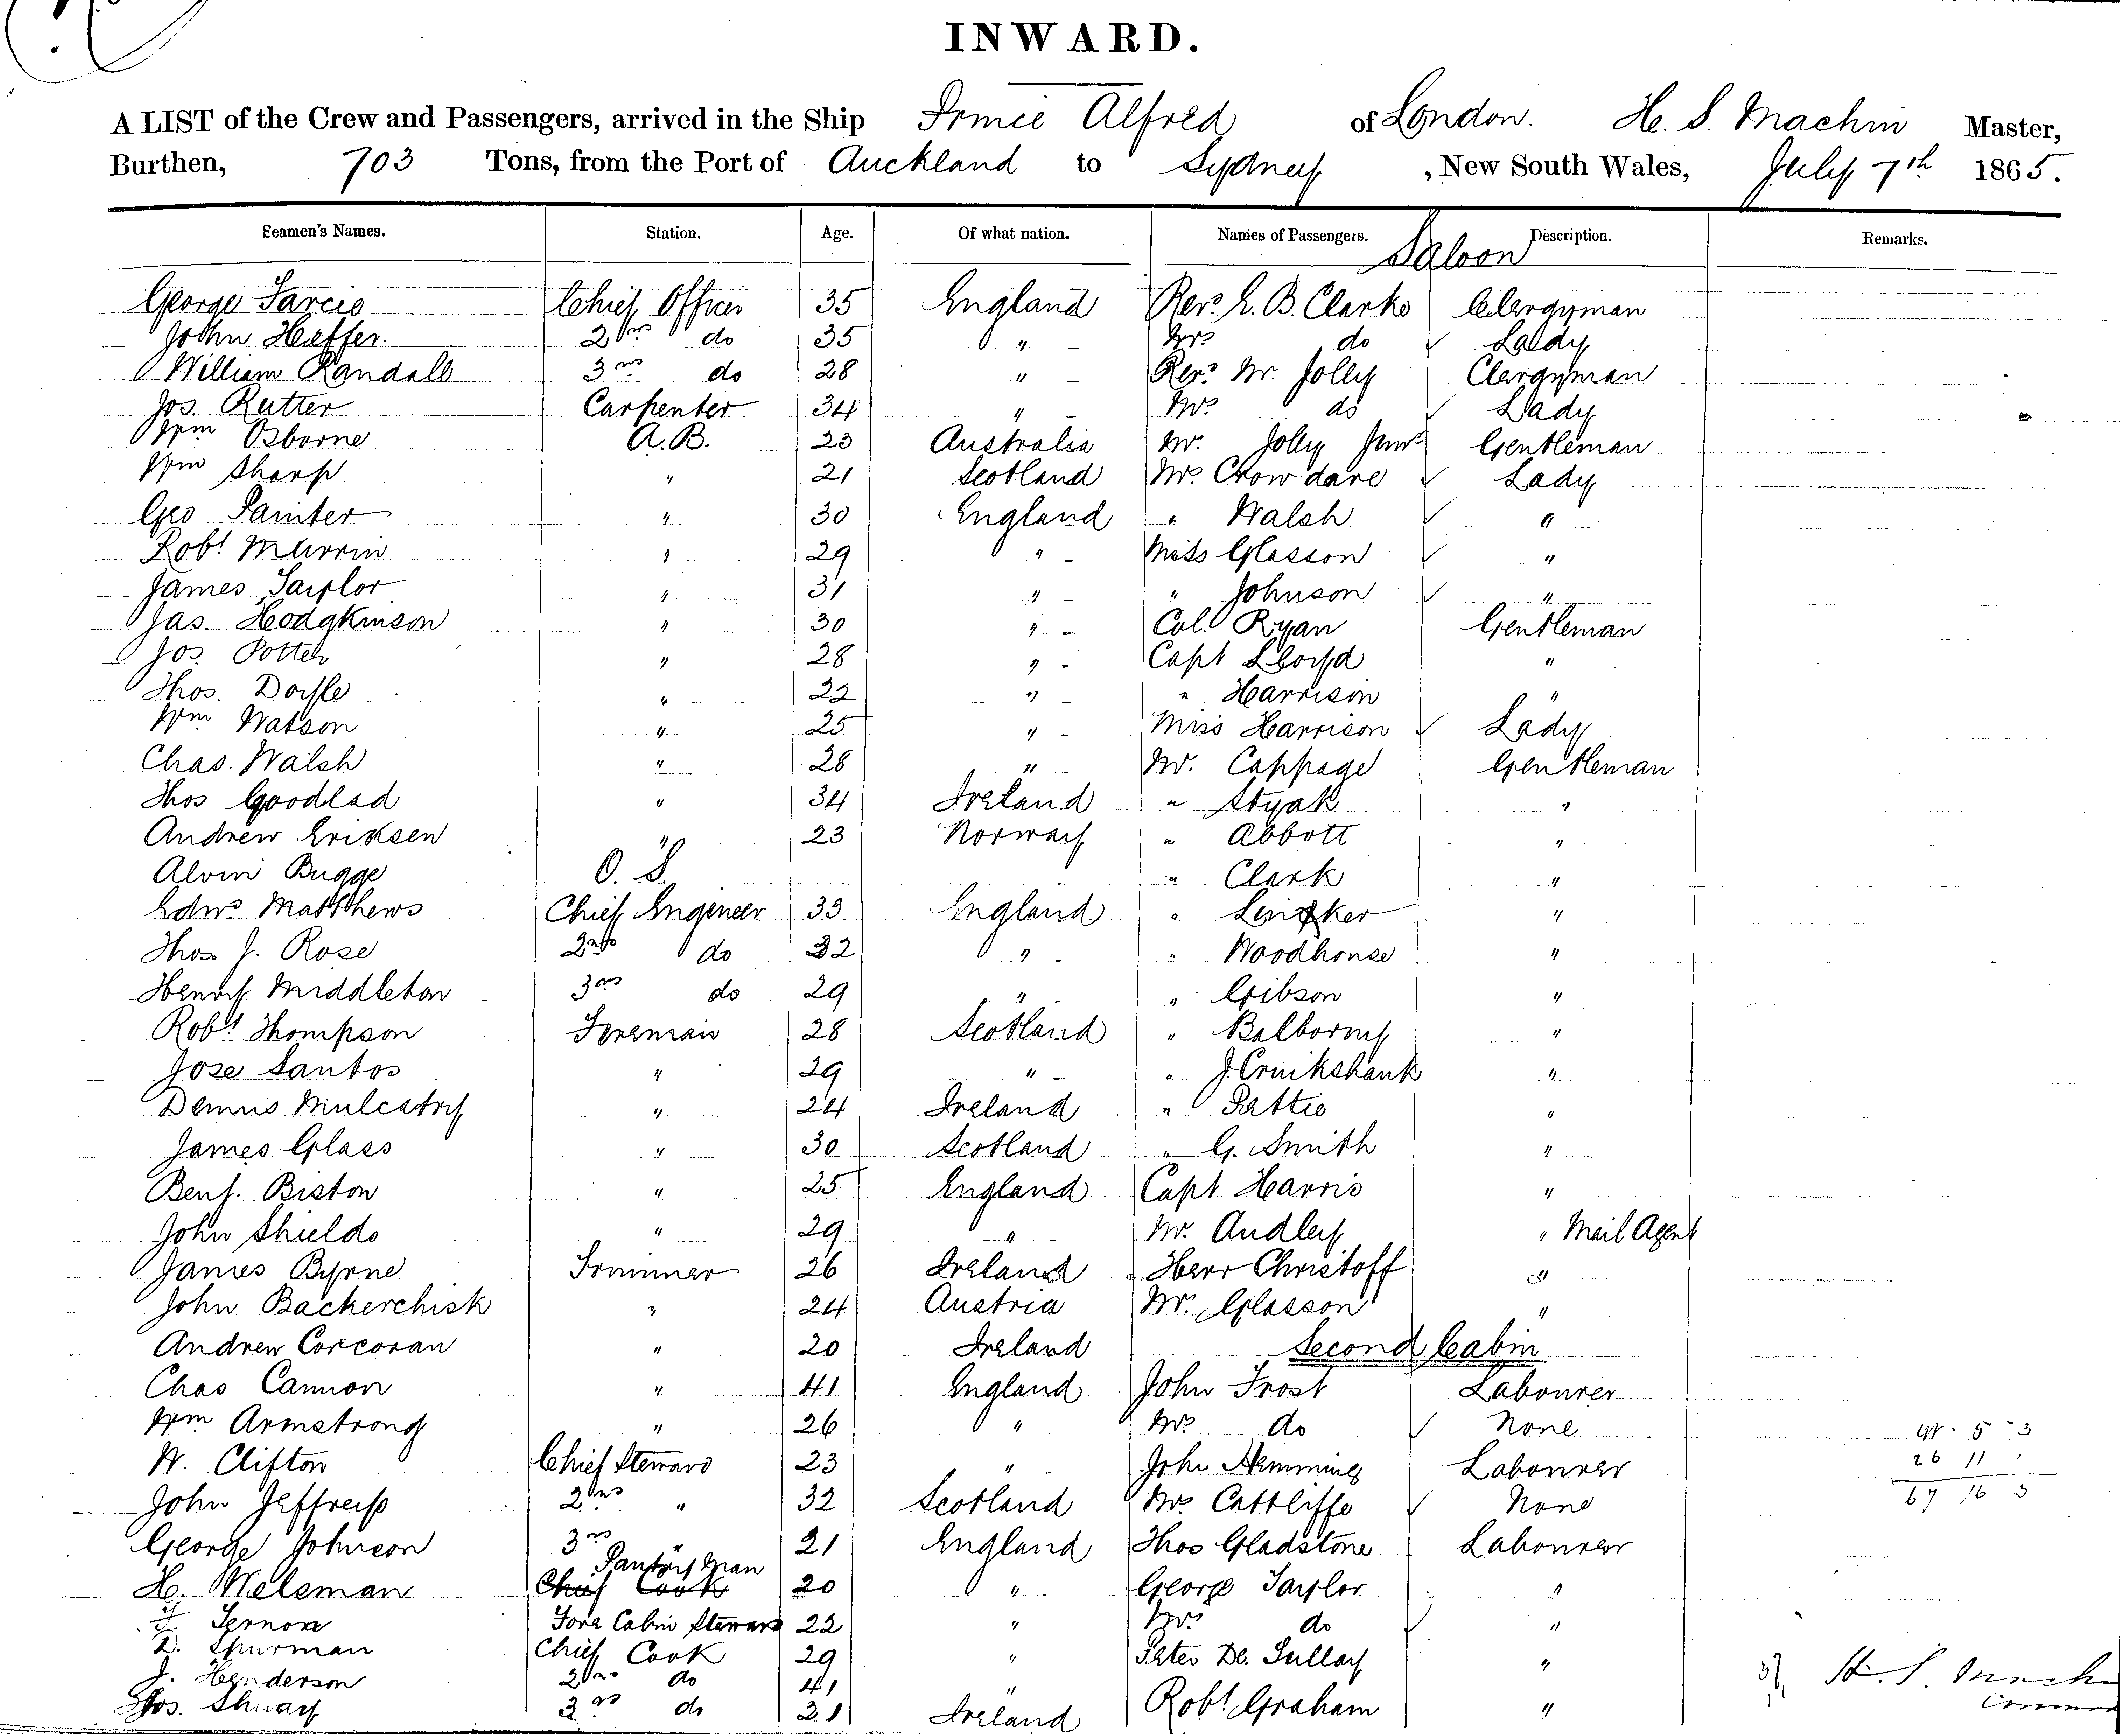 INWARD.
A LIST of the Crew and Passengers, arrived in the Ship Prince Alfred of London. H. S. Machin Master,
Burthen, 703 Tons, from the Port of Auckland to Sydney, New South Wales, July 7th 1865.
Seamen's Names. Station. Age. Of what nation. Names of Passengers. Description. Remarks.
Saloon
George Chief Officer 35 England Revd. E. B. Clarke Clergyman
John Heffer 2nd do 35 " Mrs do Lady
William Randall 3rd do 28 " Revd. Mr. Jolly Clergyman
Jos. Rutter Carpenter 34 " Mrs do Lady
Wm Osborne A.B. 23 Australia Mr. Jolly Junr Gentleman
Wm Sharp " 21 Scotland Mrs. Crowdare Lady
Geo Painter " 30 England " Walsh "
Robt Murrin " 29 " Miss Glasson "
James Taylor " 31 " " Johnson "
Jas. Hodgkinson " 30 " Col. Ryan Gentleman
Jos. Potter " 28 " Capt Lloyd "
Thos. Doyle " 22 " " Harrison "
Wm Watson " 25 " Miss Harrison Lady
Chas. Walsh " 28 " Mr. Cappage Gentleman
Thos Goodlad " 34 Ireland " Styak "
Andrew Eriksen " 23 Norway " Abbott "
Alvin Bugge O. S. " Clark "
Edwd Matthews Chief Engineer 33 England " "
Thos J. Rose 2nd do 32 " " Woodhouse "
Henry Middleton 3rd do 29 " " Gibson "
Robt Thompson Fireman 28 Scotland " "
Jose Santos " 29 " " J. Cruikshank "
Dennis Mulcatry " 24 Ireland " Pattie "
James Glass " 30 Scotland " G. Smith "
Benj. Biston " 25 England Capt Harris "
John Shields " 29 " Mr. Audley " Mail Agent
James Byrne Trimmer 26 Ireland Herr Christoff "
John Backerchisk " 24 Austria Mr. Glasson "
Andrew Corcoran " 20 Ireland Second Cabin
Chas Cannon " 41 England John Frost Labourer
Wm Armstrong " 26 " Mrs do None
W. Clifton Chief Steward 23 " John Hemming Labourer
John Jeffreys 2nd " 32 Scotland Mrs Cattliffe None
George Johnson 3rd " 21 England Thos Gladstone Labourer
H. Welsman Pantry Man Chief Cook 20 " George Taylor "
Ternon Fore Cabin Steward 22 " Mrs do "
Spurman Chief Cook 29 " Peter De "
J. Henderson 2nd do 41 "
Jos. 3rd do 21 Ireland Robt Graham "
26 11
67 16 3
H. S. Mach
Comm